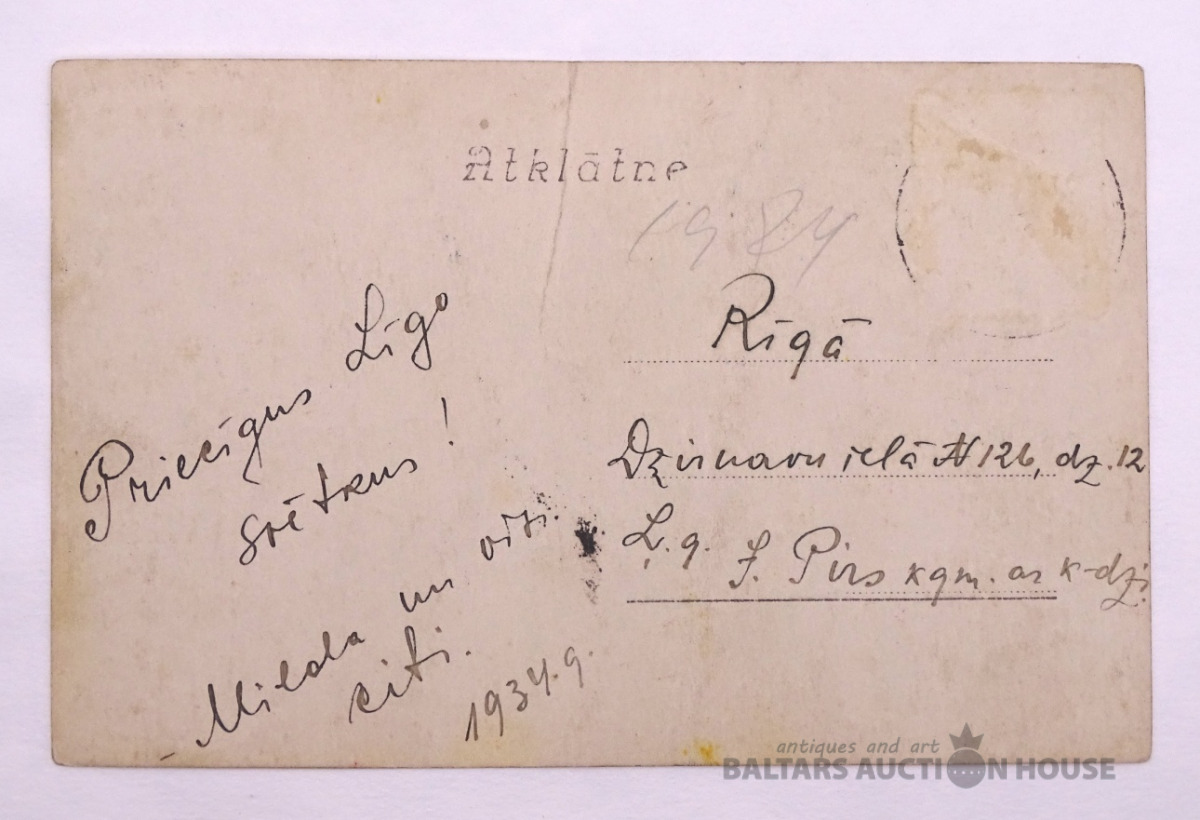 Atklātne
Priecīgus Līgo
svētkus!
Milda un visi
citi.
1934.g.
Rīgā
Dzirnavu ielā № 126, dz. 12
Ļ. g. J. Pirs kgm. ar k-dzi
antiques and art
BALTARS AUCTION HOUSE